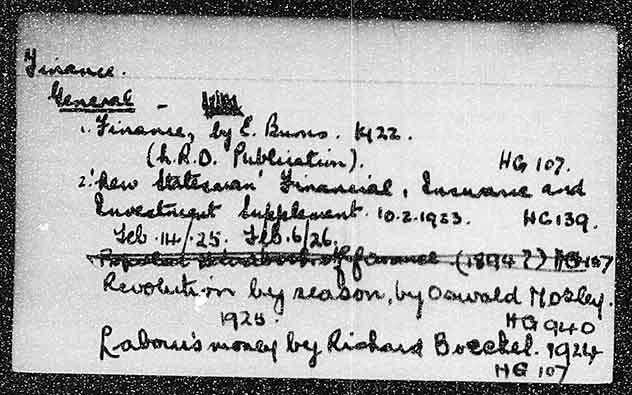 Finance.
General -
1. Finance, by E. Burns. 1922.
(L.R.D. Publication). HG 107.
2. 'New Statesman' Financial, Insurance and
Investment Supplement. 10.2.1923. HG 139.
Feb. 14/25. Feb. 6/26.
of finance (1894?) HG 107
Revolution by reason, by Oswald Mosley.
1925. HG 940
Labour's money by Richard Boeckel. 1924
HG 107